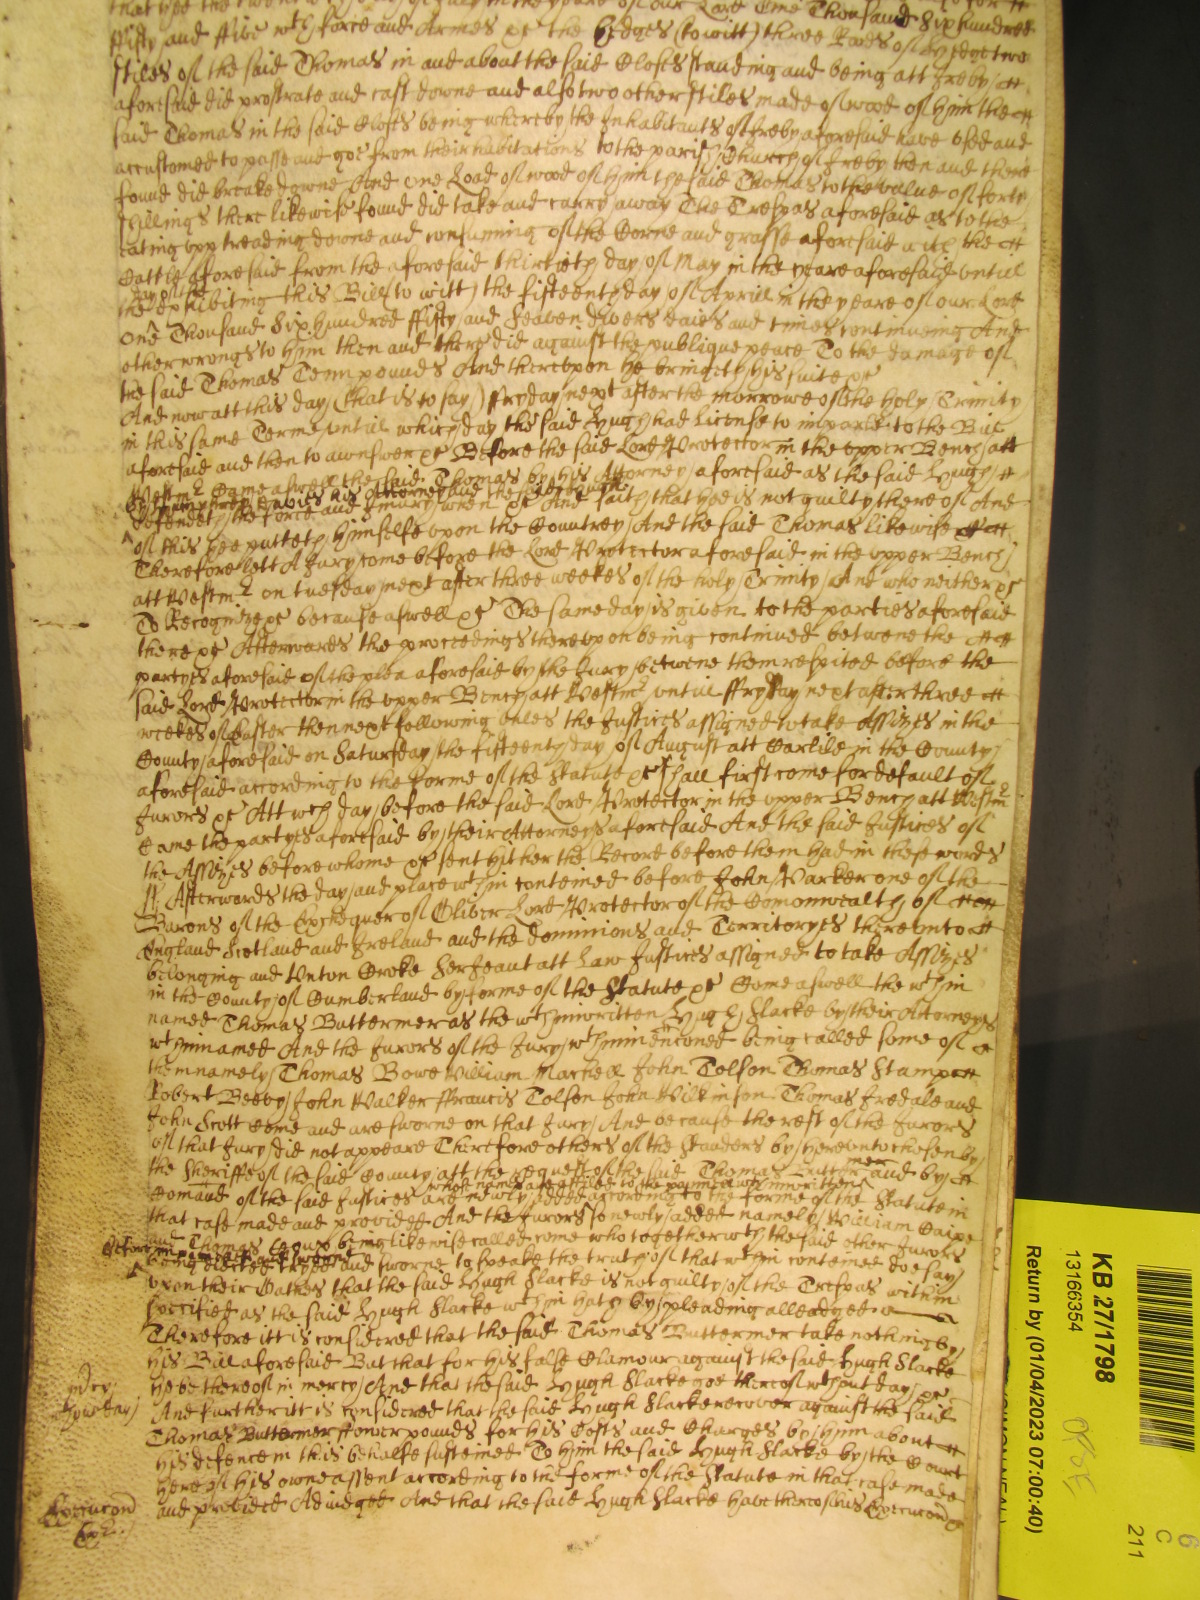 that hee the twent day of July in the yeare of our Lord One Thousand Six hundred
ffifty and ffive wth force and Armes &c the hedges (to witt) three Roods of hedge two
stiles of the said Thomas in and about the said Closes standing and being att Ireby
aforesaid did prostrate and cast downe and also two other stiles made of wood of him the
said Thomas in the said Closes being whereby the Inhabitants of Ireby aforesaid have used and
accustomed to passe and goe from their habitations to the parish Church of Ireby then and there
found did breake downe And one Load of wood of him the said Thomas to the value of forty
shillings there likewise found did take and carry away The Trespas aforesaid as to the
eating upp treading downe and consuming of the Corne and grasse aforesaid with the
Cattle aforesaid from the aforesaid thirtieth day of May in the yeare aforesaid untill
day of the
the exhibiting this Bill (to witt) the fifteenth day of Aprill in the yeare of our Lord
One Thousand Six hundred ffifty and Seaven divers daies and times continueing And
other wrongs to him then and there did against the publique peace To the damage of
the said Thomas Tenn pounds And thereupon he bringeth his suite &c
And now att this day (that is to say) ffryday next after the morrowe of the holy Trinity
in this same Terme untill which day the said Hugh had License to imparle to the Bill
aforesaid and then to answer &c Before the said Lord Protector in the upper Bench att
Westmr Came aswell the said Thomas by his Attorney aforesaid as the said Hugh
by his Attorney and the said Hugh
defendeth the force and injury when &c And saith that hee is not guilty thereof And
of this hee putteth himselfe upon the Countrey And the said Thomas likewise &c
Therefore lett A Jury come before the Lord Protector aforesaid in the upper Bench
att Westmr on tuesday next after three weekes of the holy Trinity And who neither &c
To Recognize &c because aswell &c The same day is given to the parties aforesaid
there &c Afterwards the proceedings thereupon being continued betweene the
partyes aforesaid of the plea aforesaid by the Jury betwene them respited before the
said Lord Protector in the upper Bench att Westmr untill ffryday next after three
weekes of Easter then next following unles the Justices assigned to take Assizes in the
County aforesaid on Saturday the fifteenth day of August att Carlile in the County
aforesaid according to the forme of the Statute &c shall first come for default of
Jurors &c Att wch day before the said Lord Protector in the upper Bench att Westmr
Came the partyes aforesaid by their Attorneys aforesaid And the said Justices of
the Assizes before whome &c sent hither the Record before them had in these words
ss Afterwards the day and place wthin conteined before John Parker one of the
Barons of the Exchequer of Oliver Lord Protector of the Comonwealth of
England Scotland and Ireland and the dominions and Territoryes thereunto
belonging and Unton Croke Serjeant att Law Justices assigned to take Assizes
in the County of Cumberland by forme of the Statute &c Come aswell the wthin
named Thomas Buttermer as the wthin written Hugh Slacke by their Attorneys
wthin named And the Jurors of the Jury wthin mencioned being called some of
them namely Thomas Bowe William Machell John Tolson Thomas Stamper
Robert Beeby John Walker ffrancis Tolson John Wilkinson Thomas Iredale and
John Scott Come and are sworne on that Jury And because the rest of the Jurors
of that Jury did not appeare Therefore others of the standers by hereunto chosen by
the Sheriffe of the said County att the request of the said Thomas Buttermer and by
whose names are affiled to the pannell within written
Comand of the said Justices are newly added according to the forme of the Statute in
that case made and provided And the Jurors so newly added namely William Caipe
and Thomas being likewise called come who together wth the said other Jurors
being elected tryed and sworne to speake the truth of that wthin conteined doe say
upon their Oathes that the said Hugh Slacke is not guilty of the Trespas within
specified as the said Hugh Slacke wthin hath by pleading alleadged
Therefore itt is considered that the said Thomas Buttermer take nothing by
his Bill aforesaid But that for his false Clamour against the said Hugh Slacke
he be thereof in mercy And that the said Hugh Slacke goe thereof wthout day &c
And further itt is considered that the said Hugh Slacke recover against the said
Thomas Buttermer ffower pounds for his Costs and Charges by him about
his defence in this behalfe susteined To him the said Hugh Slacke by the Court
here of his owne assent according to the forme of the Statute in that case made
and provided Adjudged And that the said Hugh Slacke have thereof his Execucon &c
mercy
Execucon
KB 27/1798
13166354
Return by (01/04/2023 07:00:40)
6
C
211